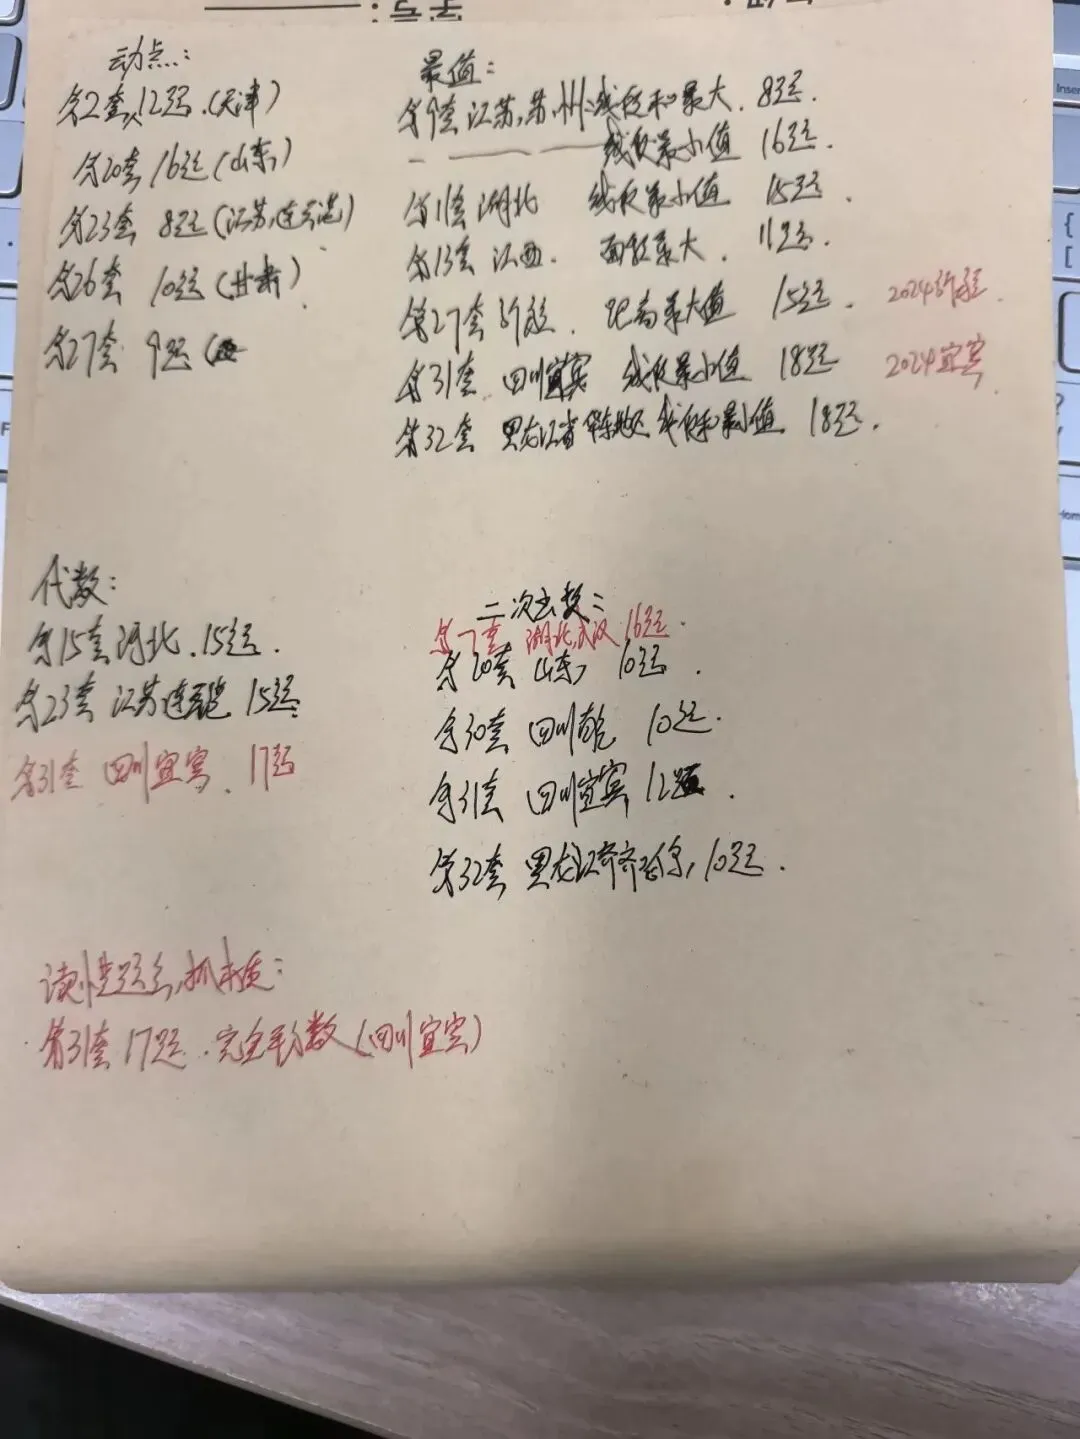 动点:
第2套,12题.(天津)
第20套 16题(山东)
第23套 8题(江苏,连云港)
第26套 10题(甘肃)
第27套 9题(
最值:
第9套 江苏,苏州:线段和最大. 8题.
线段最小值 16题.
第11套 湖北 线段最小值 15题.
第13套 江西. 面积最大. 11题.
第27套 新疆. 最大值 15题. 2024新疆.
第31套. 四川宜宾 线段最小值 18题 2024宜宾
第32套 黑龙江省 线段和最小值 18题.
代数:
第15套 河北.15题.
第23套 江苏连云港 15题.
第31套 四川宜宾. 17题
二次函数:
第7套 湖北,武汉 16题.
第20套 山东, 10题.
第30套 四川南充 10题.
第31套 四川宜宾 12题.
第32套 黑龙江齐齐哈尔, 10题.
读懂题意,抓本质:
第31套 17题. 完全平方数(四川宜宾)
Insert
{
[
?